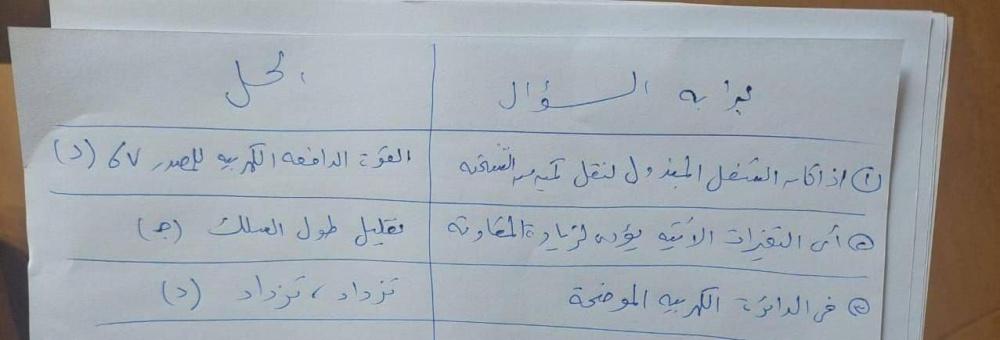 بداية السؤال الحل
① اذا كان الشغل المبذول لنقل كمية من الشحنه القوة الدافعه الكهربيه للمصدر 6V (د)
② أى التغيرات الآتيه يؤدى لزيادة المقاومة تقليل طول السلك (ج)
③ فى الدائرة الكهربيه الموضحة تزداد ، تزداد (د)